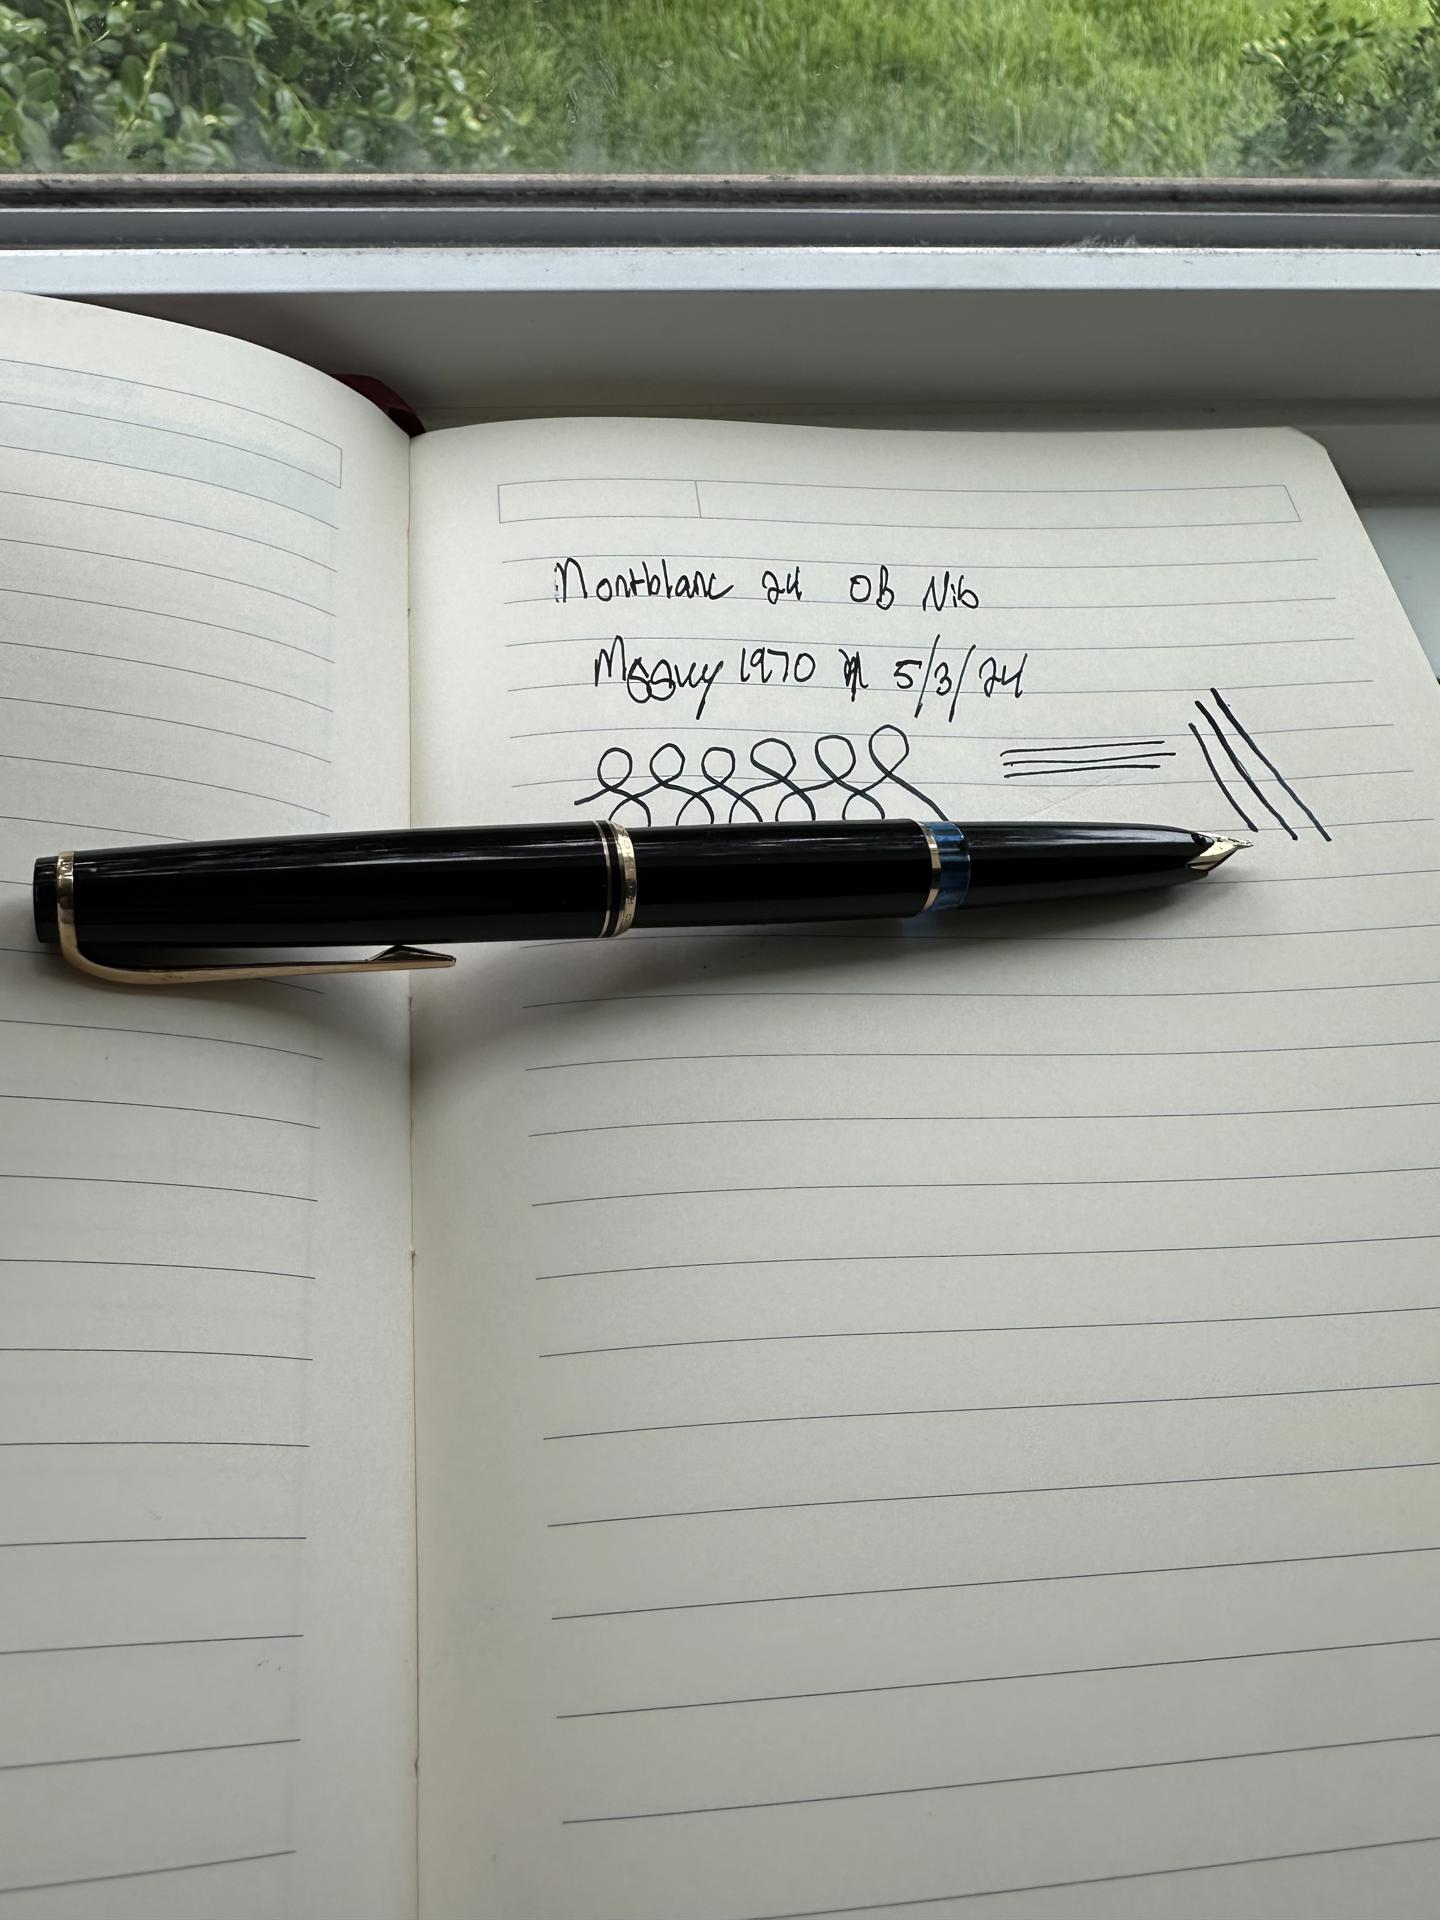 Montblanc 24 OB Nib
1970 5/3/24